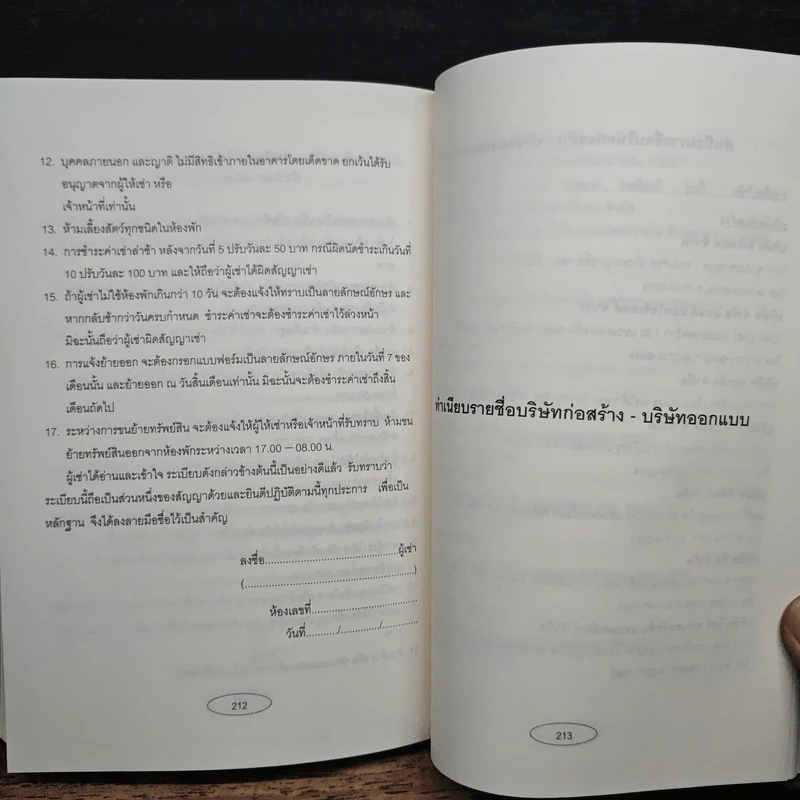 12. บุคคลภายนอก และญาติ ไม่มีสิทธิเข้าภายในอาคารโดยเด็ดขาด ยกเว้นได้รับ
อนุญาตจากผู้ให้เช่า หรือ
เจ้าหน้าที่เท่านั้น
13. ห้ามเลี้ยงสัตว์ทุกชนิดในห้องพัก
14. การชำระค่าเช่าล่าช้า หลังจากวันที่ 5 ปรับวันละ 50 บาท กรณีผิดนัดชำระเกินวันที่
10 ปรับวันละ 100 บาท และให้ถือว่าผู้เช่าได้ผิดสัญญาเช่า
15. ถ้าผู้เช่าไม่ใช้ห้องพักเกินกว่า 10 วัน จะต้องแจ้งให้ทราบเป็นลายลักษณ์อักษร และ
หากกลับช้ากว่าวันครบกำหนด ชำระค่าเช่าจะต้องชำระค่าเช่าไว้ล่วงหน้า
มิฉะนั้นถือว่าผู้เช่าผิดสัญญาเช่า
16. การแจ้งย้ายออก จะต้องกรอกแบบฟอร์มเป็นลายลักษณ์อักษร ภายในวันที่ 7 ของ
เดือนนั้น และย้ายออก ณ วันสิ้นเดือนเท่านั้น มิฉะนั้นจะต้องชำระค่าเช่าถึงสิ้น
เดือนถัดไป
17. ระหว่างการขนย้ายทรัพย์สิน จะต้องแจ้งให้ผู้ให้เช่าหรือเจ้าหน้าที่รับทราบ ห้ามขน
ย้ายทรัพย์สินออกจากห้องพักระหว่างเวลา 17.00 – 08.00 น.
ผู้เช่าได้อ่านและเข้าใจ ระเบียบดังกล่าวข้างต้นนี้เป็นอย่างดีแล้ว รับทราบว่า
ระเบียบนี้ถือเป็นส่วนหนึ่งของสัญญาด้วยและยินดีปฏิบัติตามนี้ทุกประการ เพื่อเป็น
หลักฐาน จึงได้ลงลายมือชื่อไว้เป็นสำคัญ
ลงชื่อ........................................ผู้เช่า
(....................................................)
ห้องเลขที่................................
วันที่........../............/............
212
ทำเนียบรายชื่อบริษัทก่อสร้าง - บริษัทออกแบบ
213